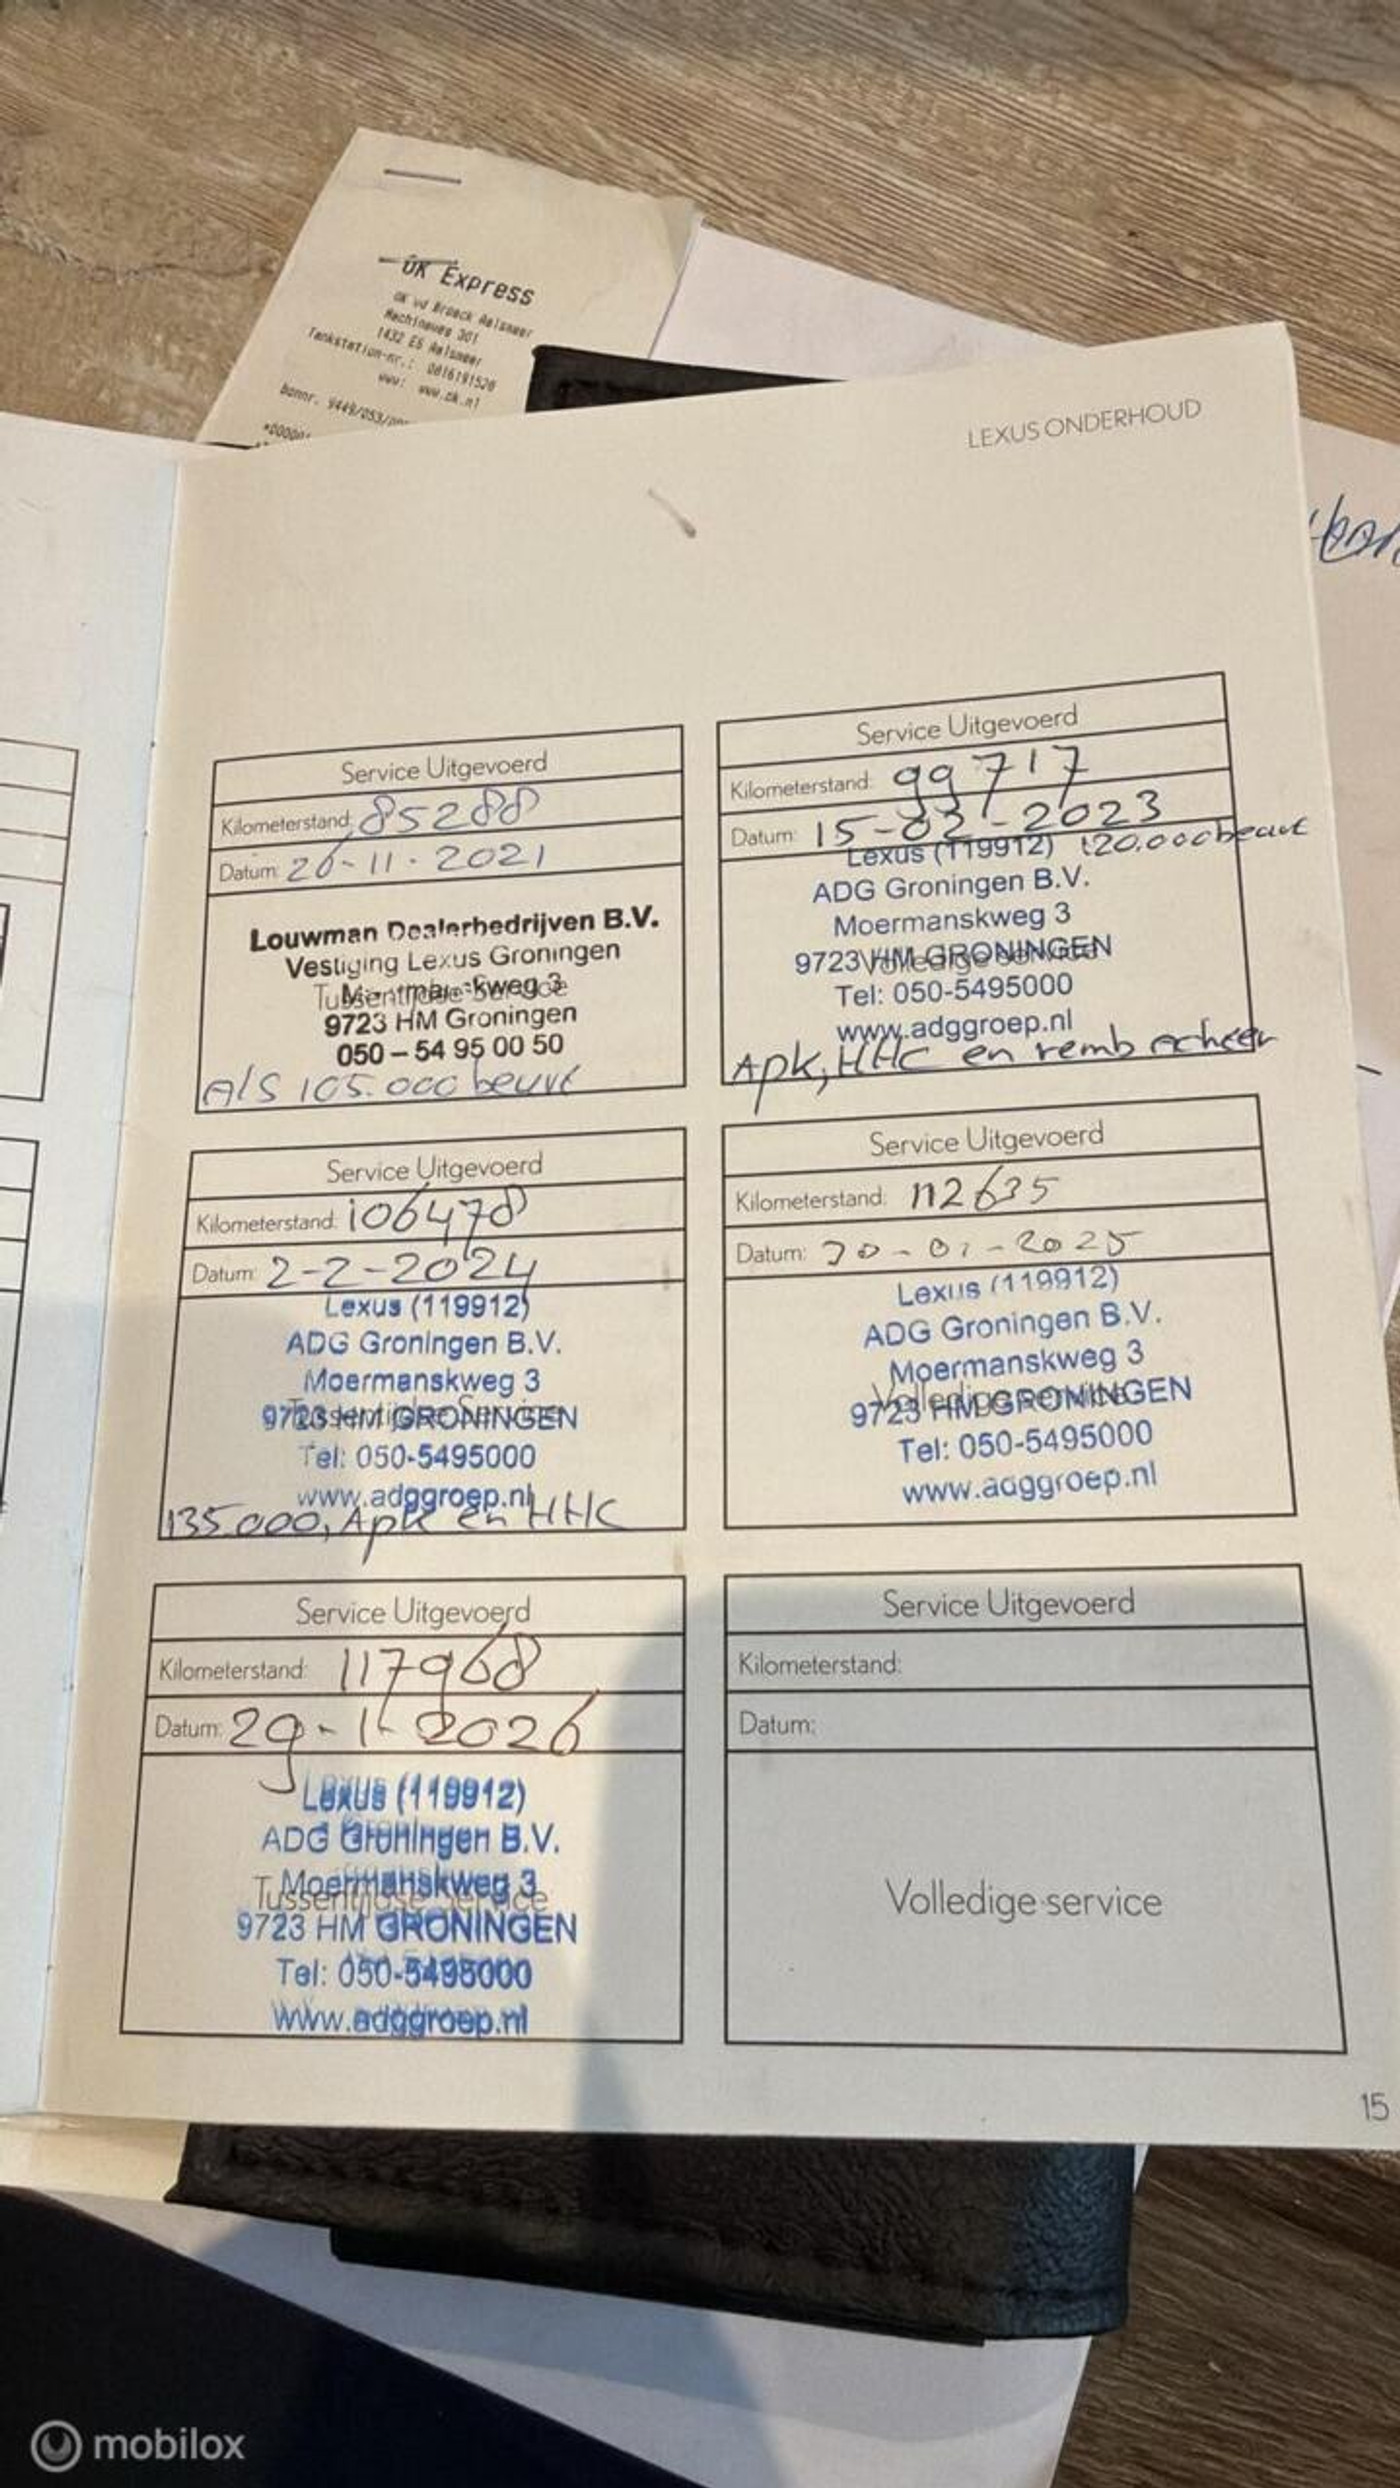 OK Express
OK vd Broeck Aalsmeer
Machineweg 301
1432 ES Aalsmeer
Tankstation-nr.: 0816191520
www: www.ok.nl
bonnr. 9449/053/
LEXUS ONDERHOUD
Service Uitgevoerd
Kilometerstand: 85288
Datum: 26-11-2021
Louwman Dealerbedrijven B.V.
Vestiging Lexus Groningen
Tussentijdse Service
9723 HM Groningen
050 – 54 95 00 50
Als 105.000 beurt
Service Uitgevoerd
Kilometerstand: 99717
Datum: 15-02-2023
Lexus (119912) 120.000 beurt
ADG Groningen B.V.
Moermanskweg 3
9723 HM GRONINGEN
Volledige service
Tel: 050-5495000
www.adggroep.nl
Apk, HHC en remb echeer
Service Uitgevoerd
Kilometerstand: 106478
Datum: 2-2-2024
Lexus (119912)
ADG Groningen B.V.
Moermanskweg 3
Tussentijdse Service
9723 HM GRONINGEN
Tel: 050-5495000
www.adggroep.nl
135.000, Apk en HHC
Service Uitgevoerd
Kilometerstand: 112635
Datum: 30-01-2025
Lexus (119912)
ADG Groningen B.V.
Moermanskweg 3
Volledige service
9723 HM GRONINGEN
Tel: 050-5495000
www.adggroep.nl
Service Uitgevoerd
Kilometerstand: 117968
Datum: 29-1-2026
Lexus (119912)
ADG Groningen B.V.
Moermanskweg 3
Tussentijdse Service
9723 HM GRONINGEN
Tel: 050-5495000
www.adggroep.nl
Service Uitgevoerd
Kilometerstand:
Datum:
Volledige service
15
mobilox